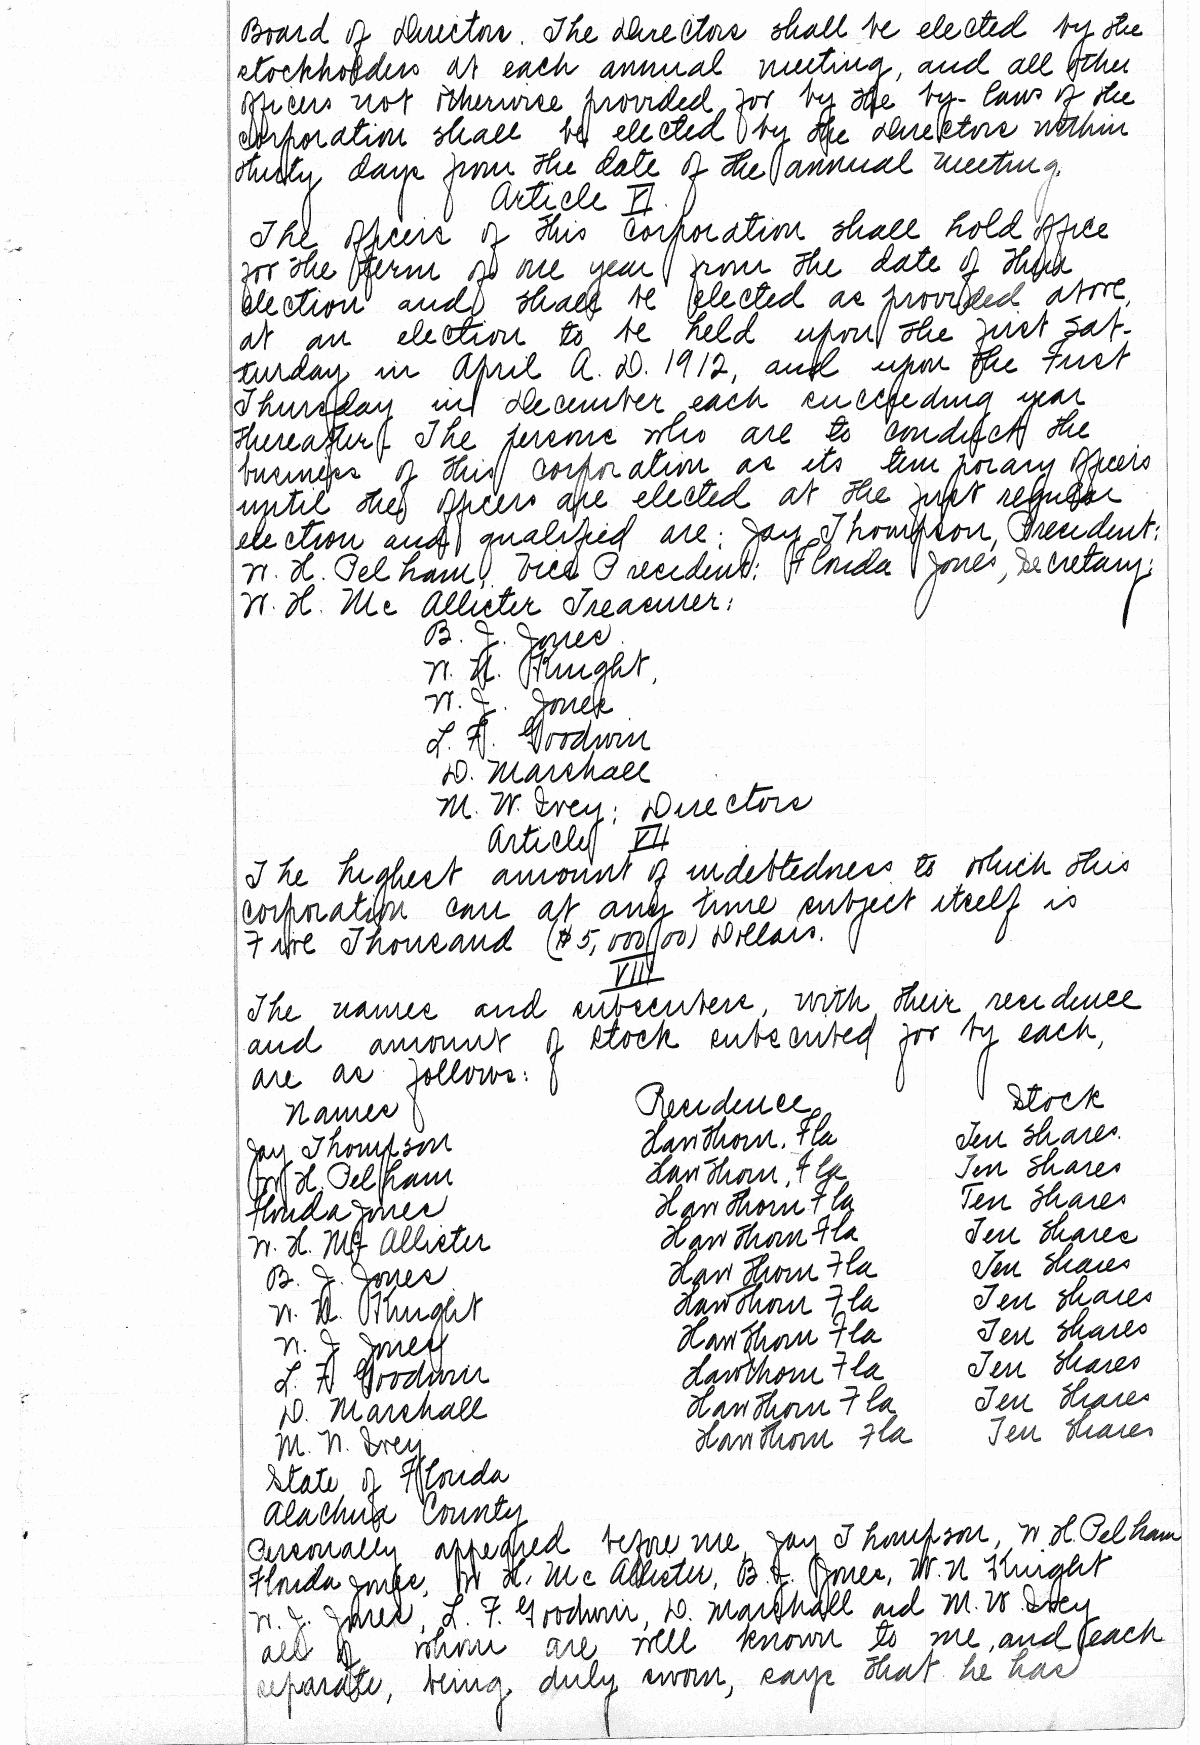 Board of Directors. The Directors shall be elected by the
stockholders at each annual meeting, and all other
officers not otherwise provided for by the by-laws of the
corporation shall be elected by the Directors within
thirty days from the date of the annual meeting.
Article VI.
The officers of this corporation shall hold office
for the term of one year from the date of their
election and shall be elected as provided above,
at an election to be held upon the first Sat-
turday in April A. D. 1912, and upon the First
Thursday in December each succeeding year
thereafter. The persons who are to conduct the
business of this corporation as its temporary officers
until the officers are elected at the first regular
election and qualified are: Jay Thompson, President:
W. H. Pelham, Vice President: Florida Jones, Secretary:
W. H. Mc Allister Treasurer:
B. J. Jones.
W. N. Knight,
W. J. Jones
L. F. Goodwin
D. Marshall
M. W. Ivey; Directors
Article VII
The highest amount of indebtedness to which this
corporation can at any time subject itself is
Five Thousand ($5,000.00) Dollars.
VIII
The names and subscribers, with their residence
and amount of stock subscribed for by each,
are as follows:
Names Residence Stock
Jay Thompson Hawthorn, Fla Ten Shares.
W H. Pelham Hawthorn, Fla Ten Shares
Florida Jones Hawthorn Fla Ten Shares
W. H. Mc Allister Hawthorn Fla Ten Shares
B. J. Jones Hawthorn Fla Ten Shares
W. N. Knight Hawthorn Fla Ten Shares
W. J Jones Hawthorn Fla Ten Shares
L. F Goodwin Hawthorn Fla Ten Shares
D. Marshall Hawthorn Fla Ten Shares
M. W. Ivey Hawthorn Fla Ten Shares
State of Florida
Alachua County
Personally appeared before me, Jay Thompson, W H Pelham
Florida Jones, W H. Mc Allister, B. J. Jones, W. N Knight
W. J. Jones, L. F. Goodwin, D. Marshall and M. W. Ivey
all of whom are well known to me, and each
separate, being duly sworn, says that he has